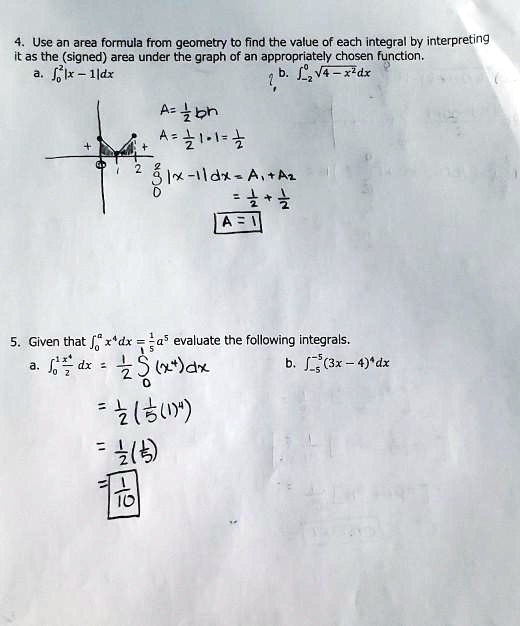 4. Use an area formula from geometry to find the value of each integral by interpreting
it as the (signed) area under the graph of an appropriately chosen function.
a. ∫₀²|x − 1|dx
? b. ∫₋₂⁰ √4 − x² dx
A = 1/2 bh
A = 1/2 1·1 = 1/2
+ +
1 2
∫₀² |x - 1| dx = A₁ + A₂
= 1/2 + 1/2
A = 1
5. Given that ∫₀ᵃ x⁴dx = 1/5 a⁵ evaluate the following integrals.
a. ∫₀¹ x⁴/2 dx = 1/2 ∫₀¹ (x⁴)dx
b. ∫₋₅⁻⁵(3x − 4)⁴dx
= 1/2 (1/5 (1)⁴)
= 1/2 (1/5)
= 1/10